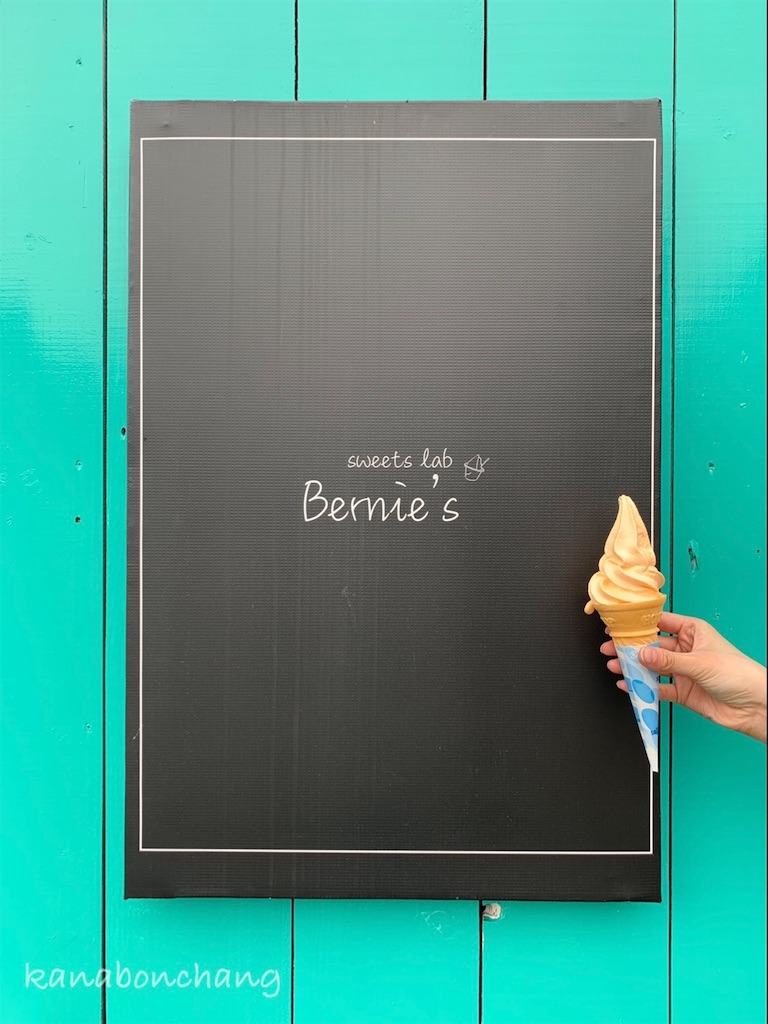 sweets lab
Bernie's
kanabonchang